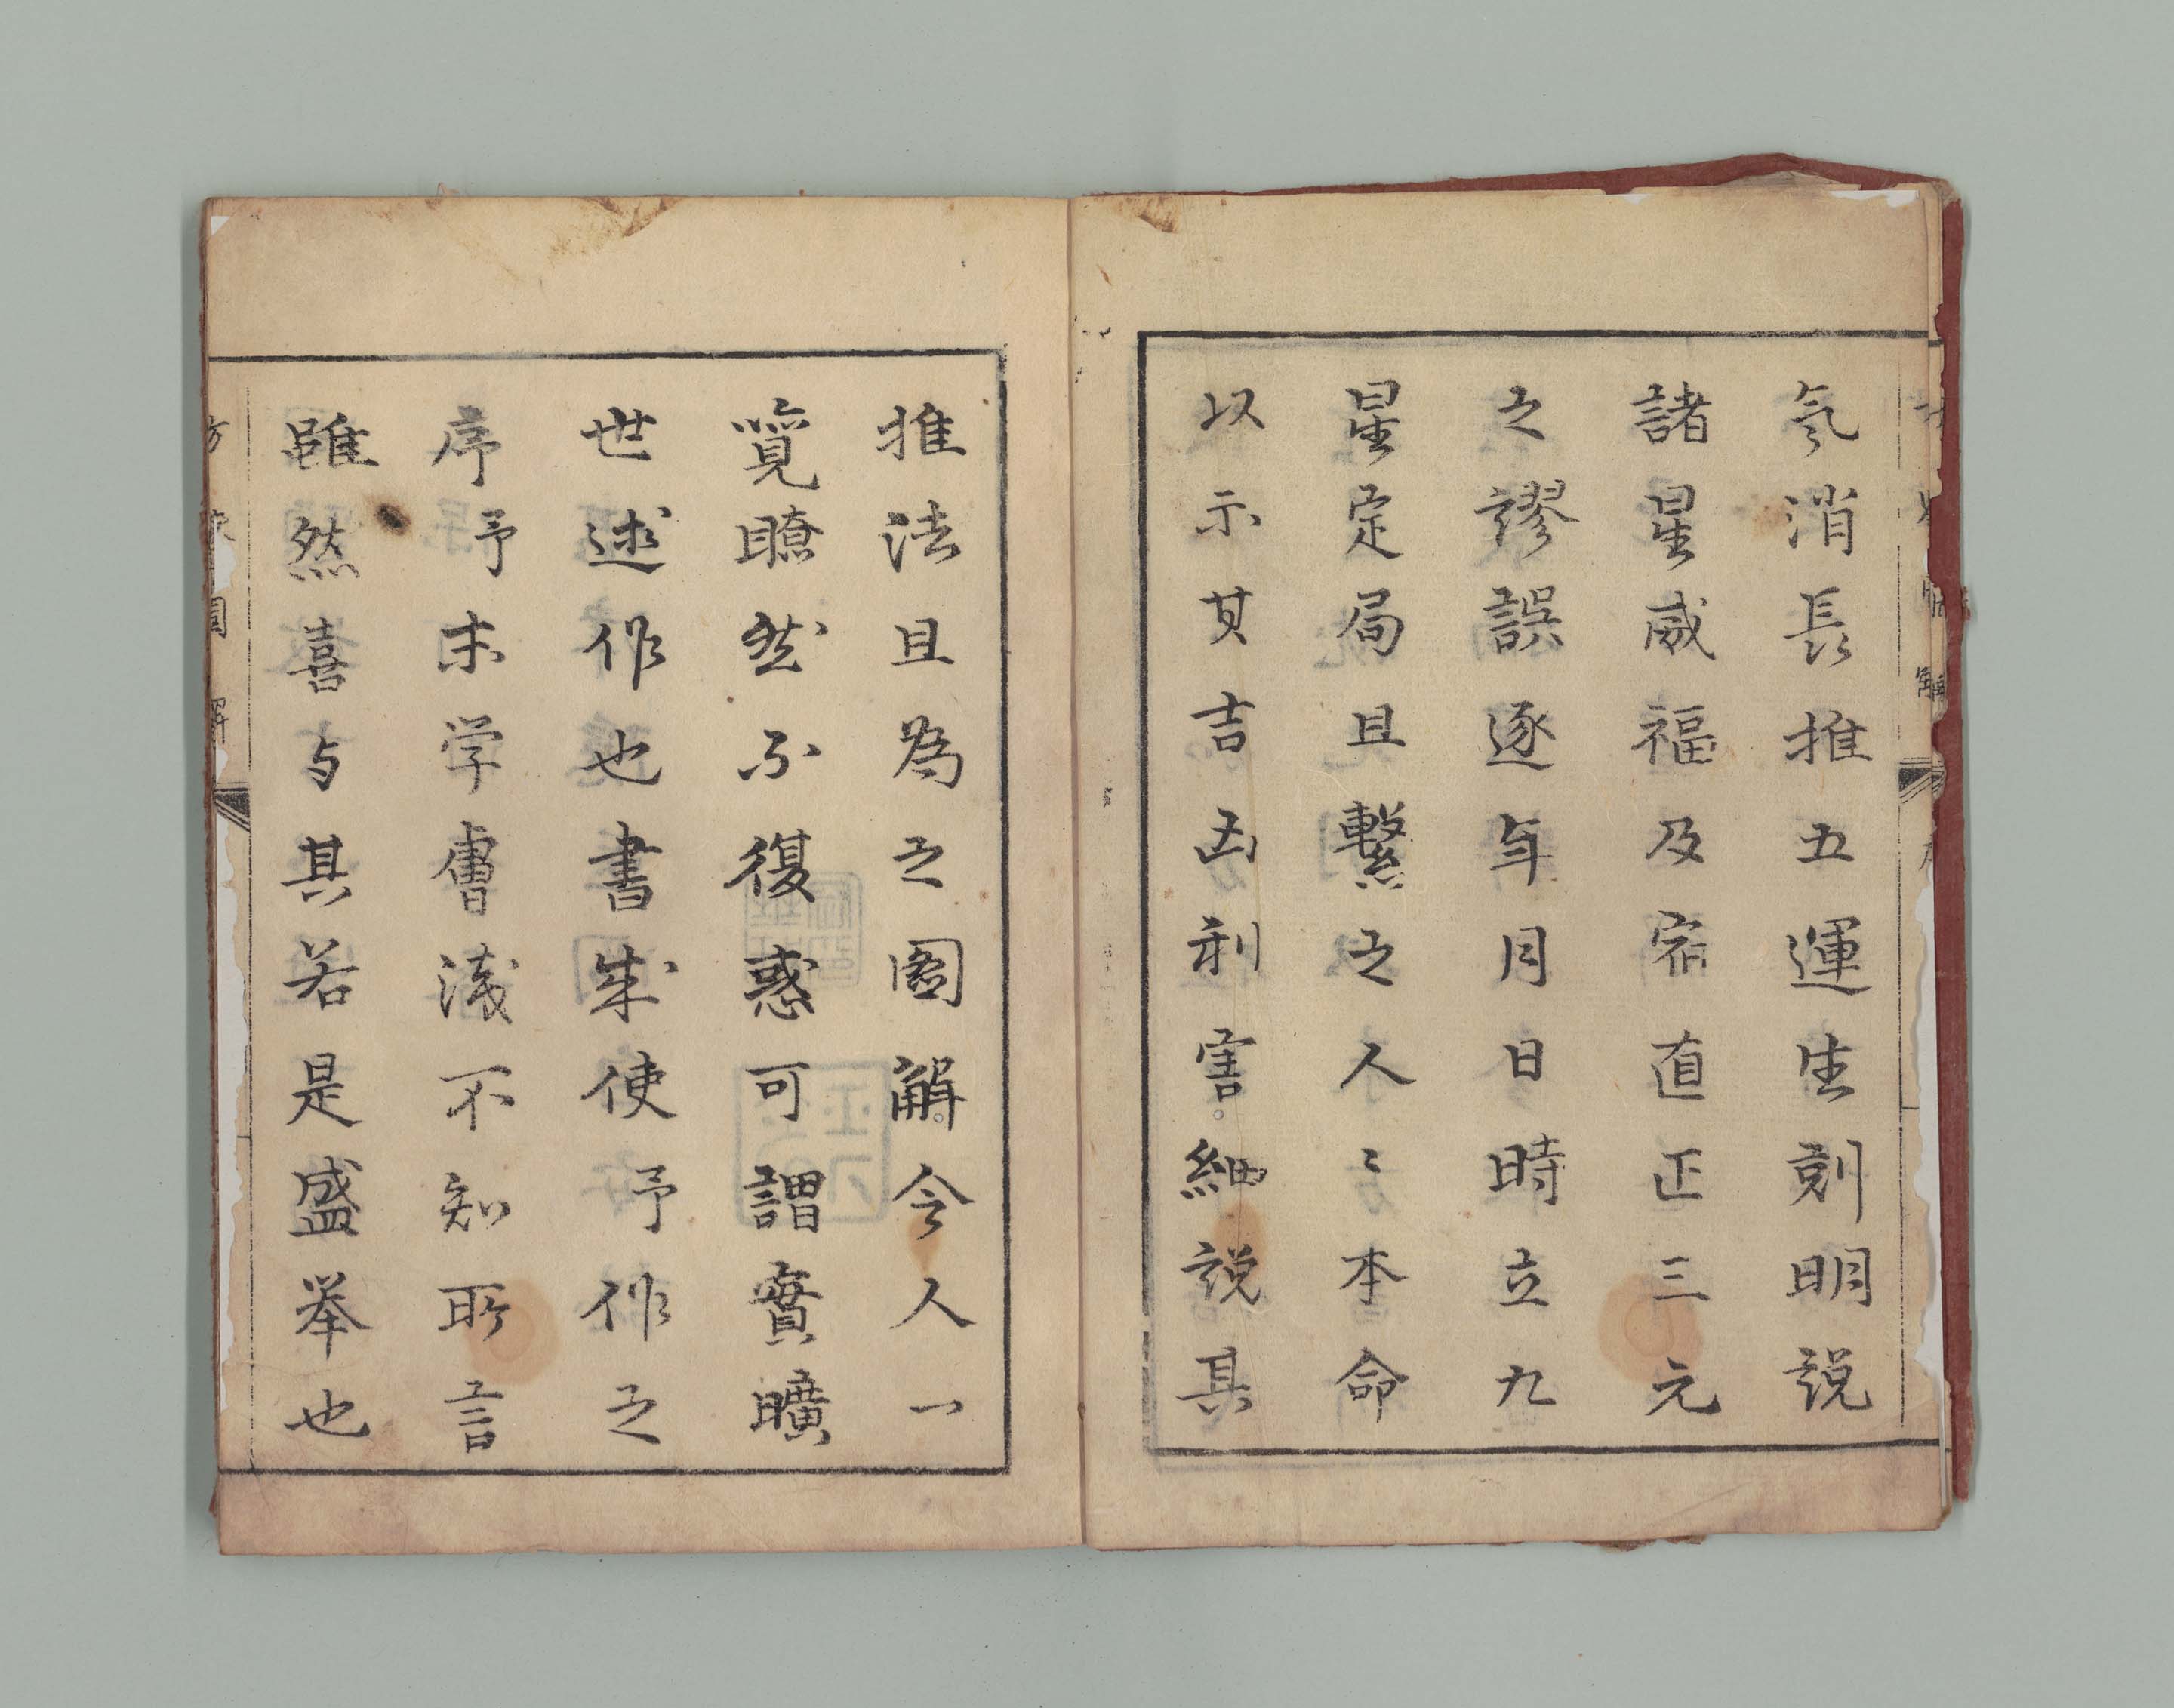 氣消長推五運生剋明説
諸星威福及宿直正三元
之謬誤逐年月日時立九
星定局且繫之人〻本命
以示其吉凶利害細説其
推法且為之圖解令人一
覧瞭然不復惑可謂實曠
世述作也書成使予作之
序予末学膚浅不知所言
雖然喜与其若是盛挙也